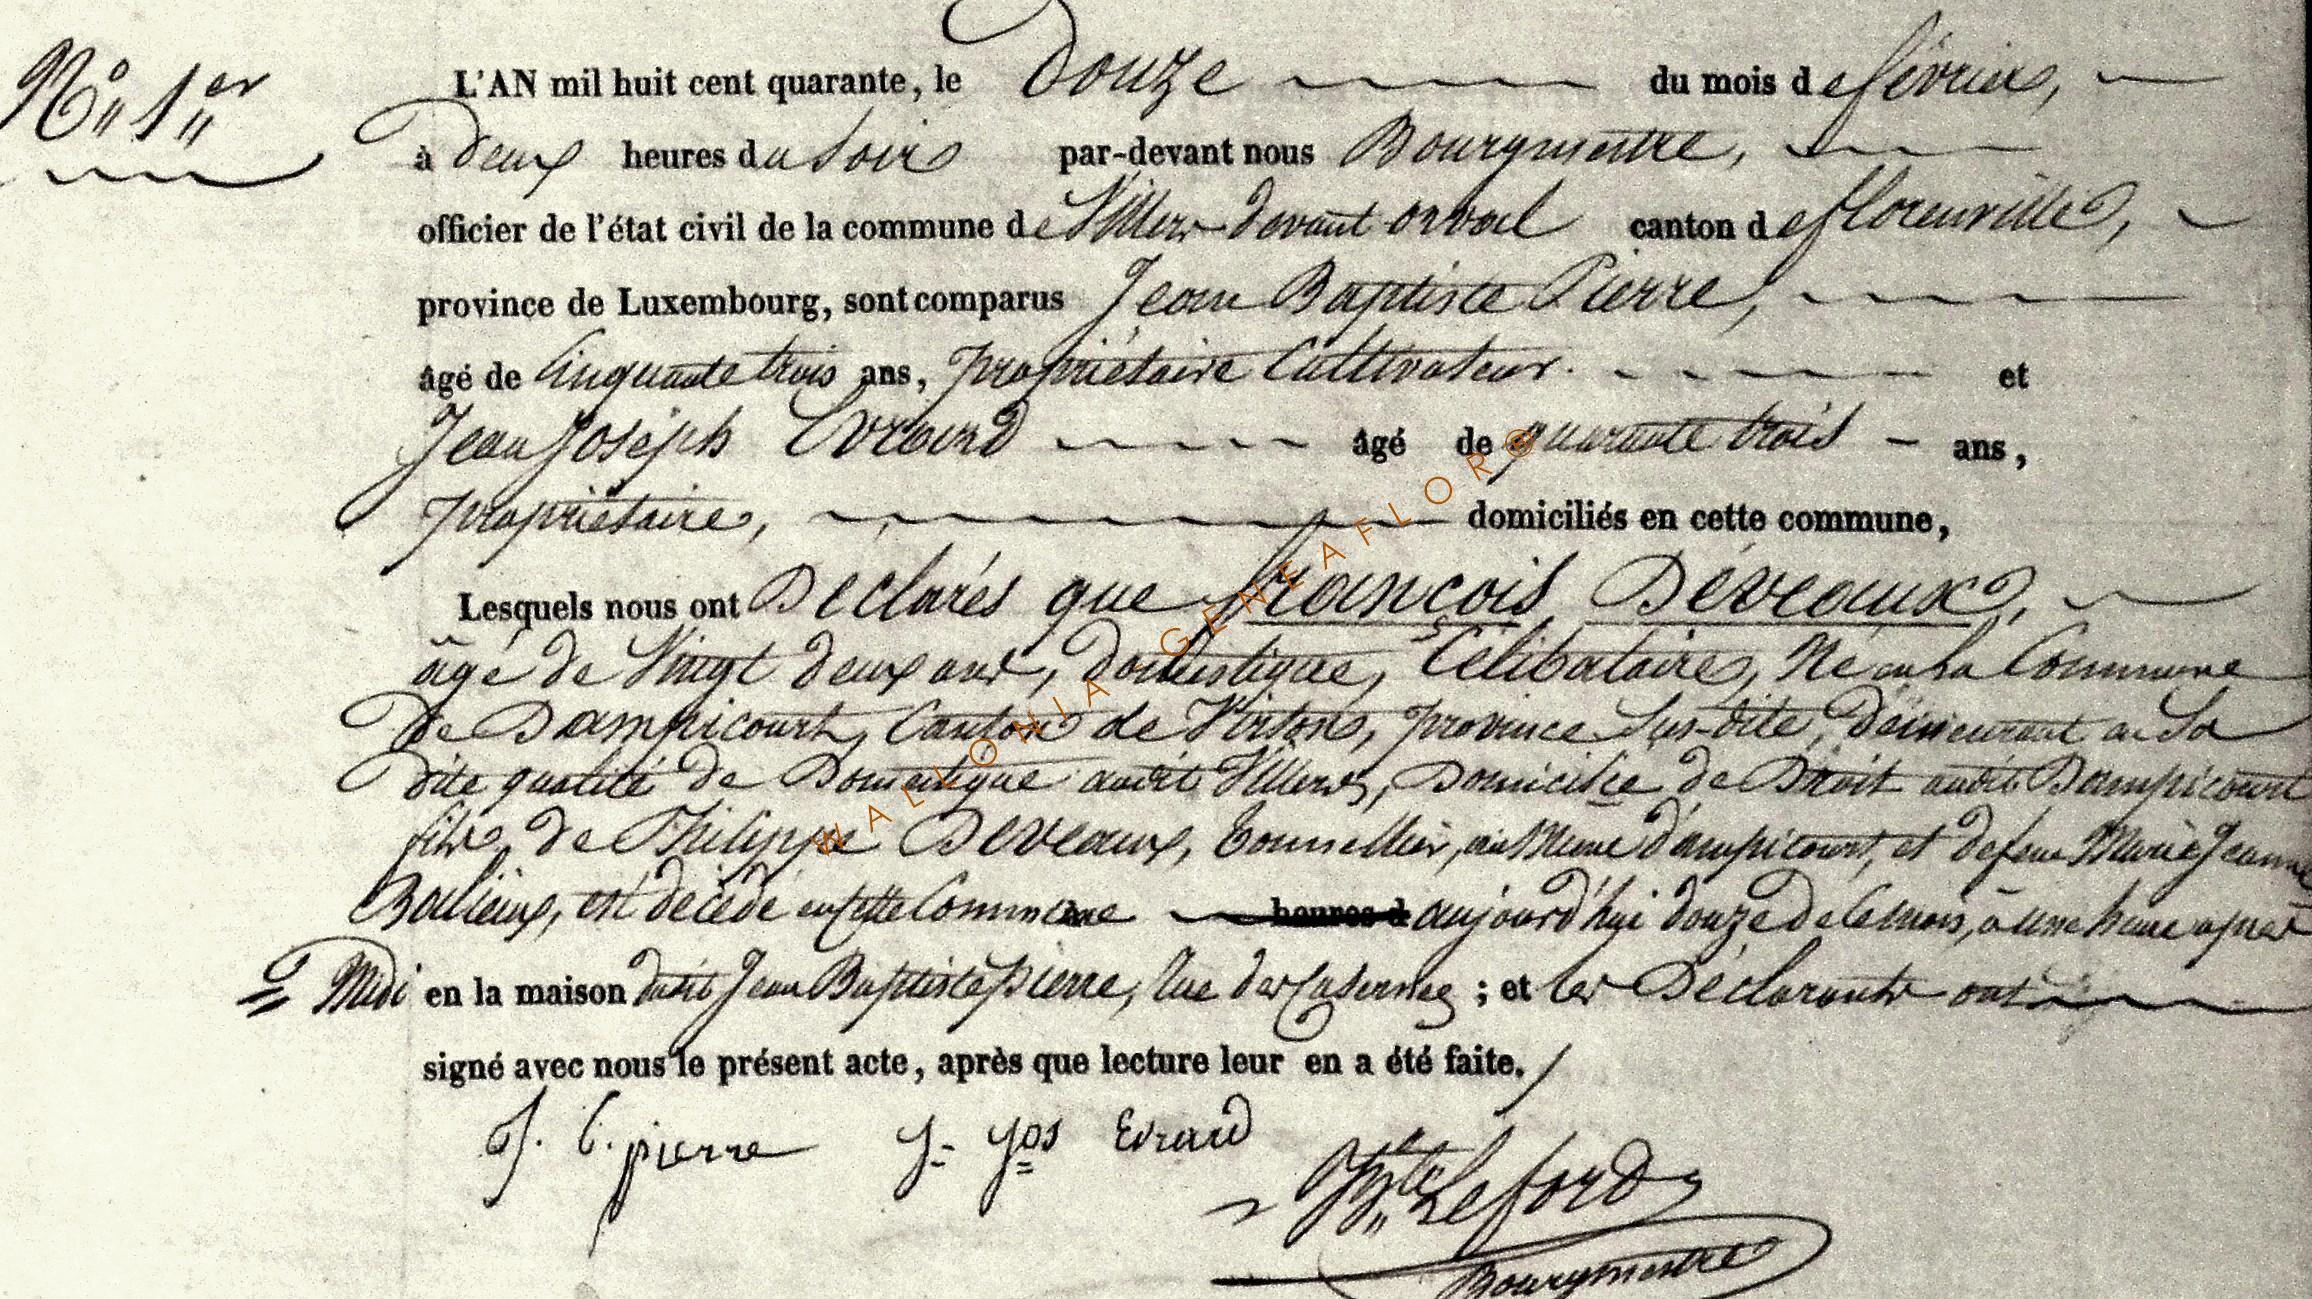 N° 1er
L'AN mil huit cent quarante, le Douze du mois de février,
à Deux heures du soir par-devant nous Bourgmestre,
officier de l'état civil de la commune de Villers-devant-orval canton de florenville,
province de Luxembourg, sont comparus Jean Baptiste Pierre,
âgé de Cinquante trois ans, propriétaire Cultivateur. et
Jean Joseph Evrard âgé de quarante trois ans,
propriétaire, domiciliés en cette commune,
Lesquels nous ont Déclarés que françois Déveaux,
âgé de Vingt deux ans, domestique, Célibataire, Né en la Commune
De Dampicourt, Canton de Virton, province Sus-dite, demeurant en Sa
dite qualité de Domestique audit Villers, Domicilié de Droit audit Dampicourt
fils de Philippe Deveaux, tonnellier, au Même dampicourt, et de feue Marie Jeanne
est décédé en cette Commune heures d aujourd'hui douze de Ce mois, à une heure après
Midi en la maison dudit Jean Baptiste pierre, rue des Casernes ; et les Déclarants ont
signé avec nous le présent acte, après que lecture leur en a été faite.
J. B. pierre J- Jos Evrard
Leford
Bourgmestre
WALLONIA GENEAFLOR®